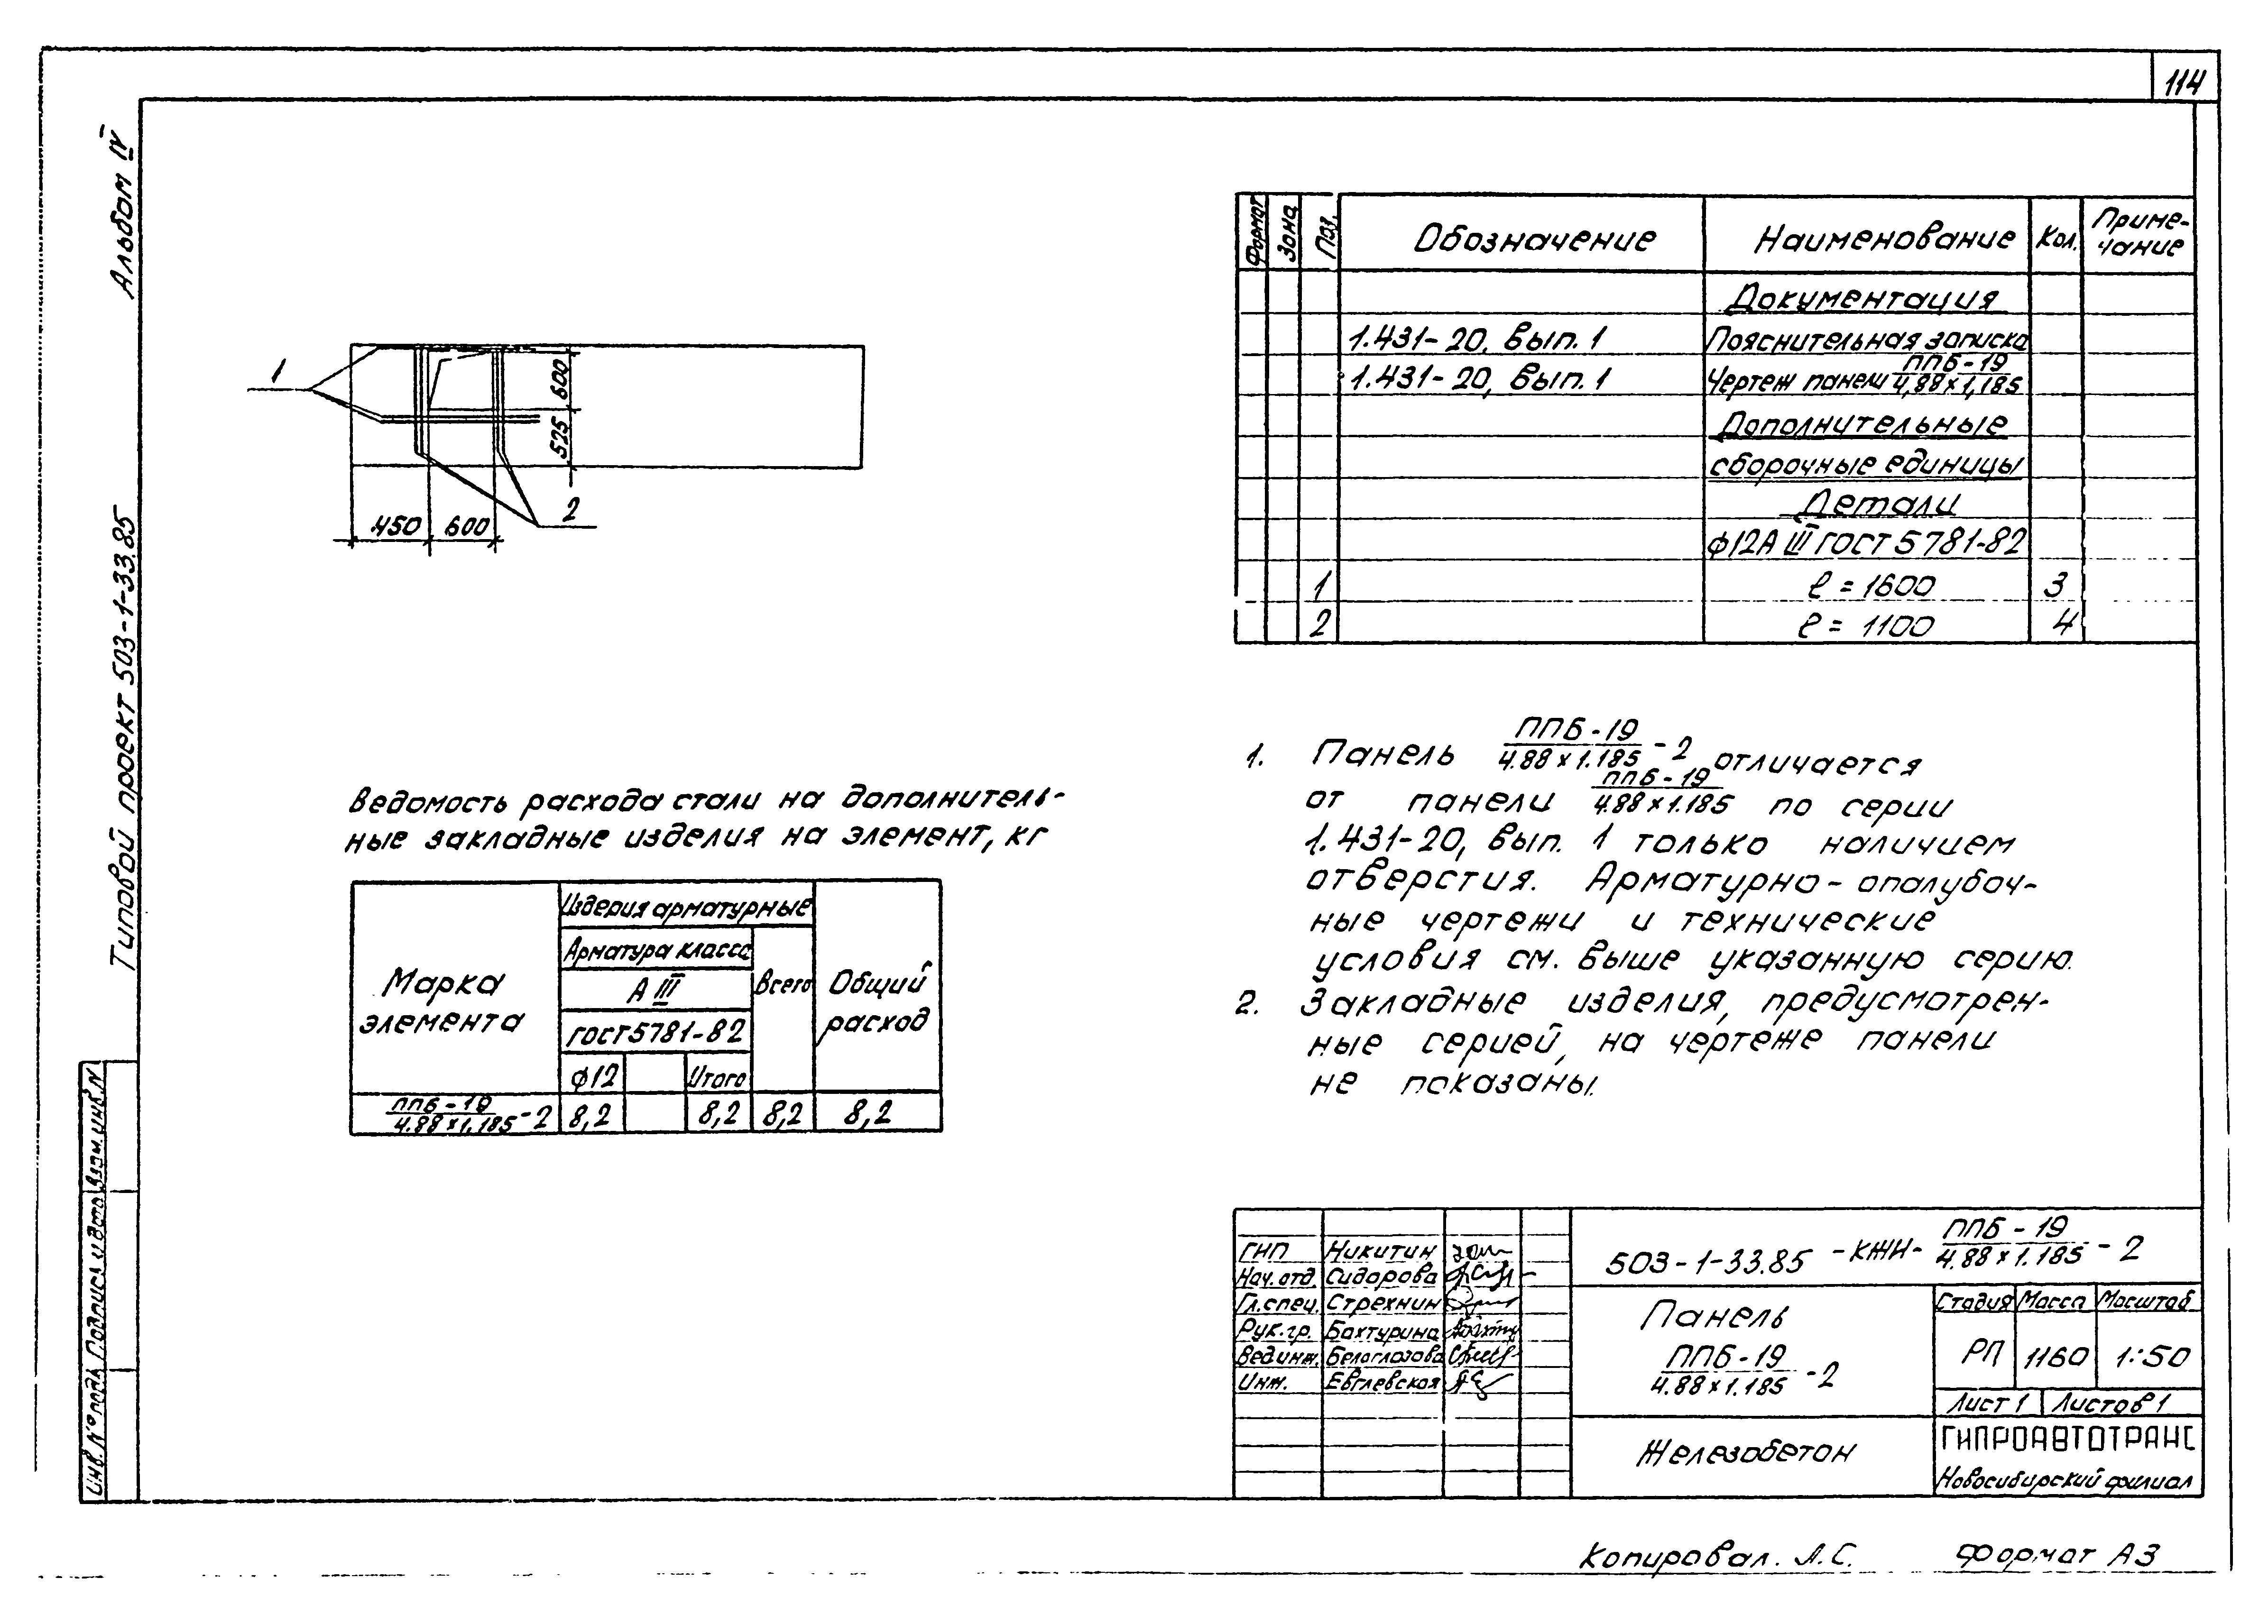 114
Альбом IV
Типовой проект 503-1-33.85
Инв. № подл. Подпись и дата Взам. инв. N
1
600
525
2
450 600
Формат Зона Поз. Обозначение Наименование Кол. Приме-
чание
Документация
1.431-20, вып. 1 Пояснительная записка
1.431-20, вып. 1 Чертеж панели ППБ-19
4,88×1,185
Дополнительные
сборочные единицы
Детали
ф12А III ГОСТ 5781-82
1 ℓ = 1600 3
2 ℓ = 1100 4
1. Панель ППБ-19
4.88×1.185 -2 отличается
от панели ППБ-19
4.88×1.185 по серии
1.431-20, вып. 1 только наличием
отверстия. Арматурно-опалубоч-
ные чертежи и технические
условия см. выше указанную серию.
2. Закладные изделия, предусмотрен-
ные серией, на чертеже панели
не показаны.
Ведомость расхода стали на дополнитель-
ные закладные изделия на элемент, кг
Марка
элемента
Изделия арматурные
Арматура класса
А III
ГОСТ 5781-82
ф12 Итого
Всего
Общий
расход
ППБ-19
4.88×1.185 -2 8,2 8,2 8,2 8,2
ГИП Никитин
Нач.отд. Сидорова
Гл.спец. Стрехнин
Рук.гр. Бахтурина
Вед.инж. Белоглазова
Инж. Евглевская
503-1-33.85 -КЖИ- ППБ-19
4.88×1.185 -2
Панель
ППБ-19
4.88×1.185 -2
Стадия Масса Масштаб
РП 1160 1:50
Лист 1 Листов 1
Железобетон
ГИПРОАВТОТРАНС
Новосибирский филиал
Копировал. Л.С. Формат А3